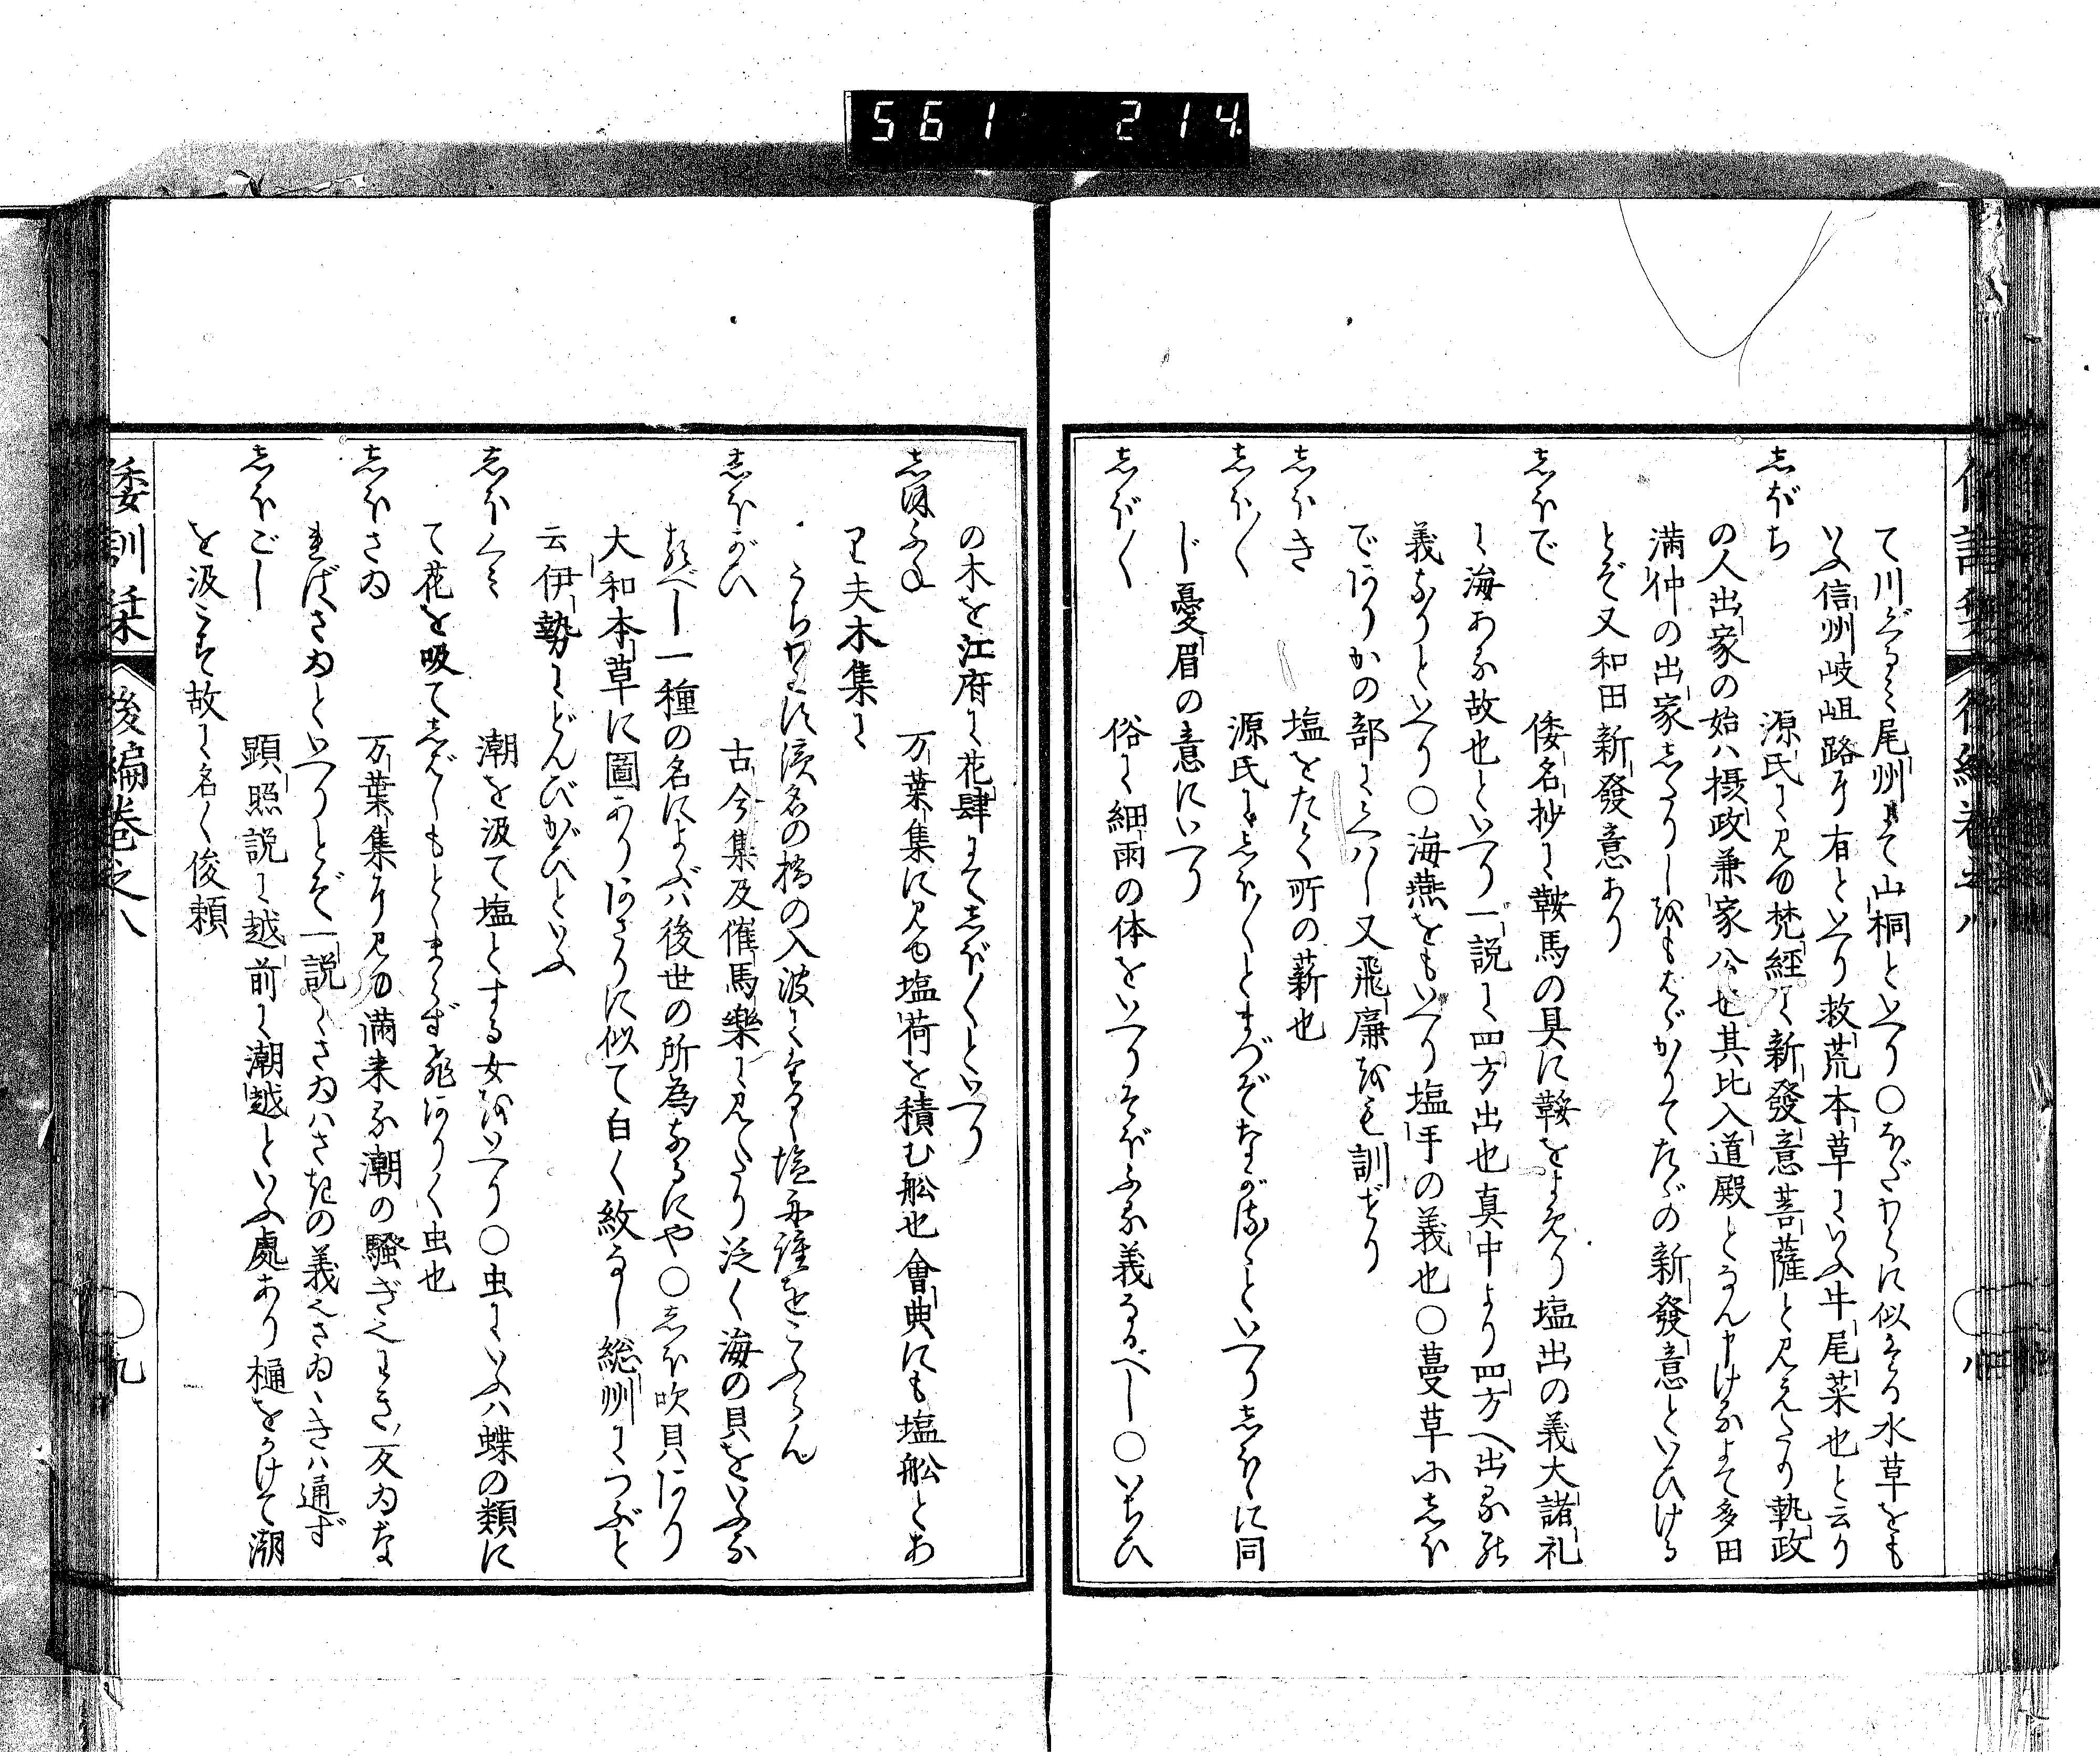 561 214
て川ぐるミ尾州にて山桐といへり〇ほだわらに似たる水草をも
いふ信州岐岨路に有といへり救荒本草にいふ牛尾菜也と云り
志ぼち 源氏に見ゆ梵経に新發意菩薩と見えたり執政
の人出家の始ハ摂政兼家公也其比入道殿となん申けるよて多田
満仲の出家志たりしをもはゞかりてたゞの新發意といひける
とぞ又和田新發意あり
志ほで 倭名抄に鞍馬の具に鞍をよめり塩出の義大諸礼
に海ある故也といへり一説に四方出也真中より四方へ出る
義なりといへり〇海燕をもいへり塩手の義也〇蔓草に志ほ
でありかの部にミへハし又飛廉をも訓ぜり
志ほき 塩をたく所の薪也
志ほ〱 源氏に志ほ〱とまづぞながるゝといへり志ほゝに同
じ憂眉の意にいへり
志ぼ〱 俗に細雨の体をいへりそぼふる義なるべし〇いちひ
の木を江府に花肆にて志ぼ〱といへり
志ほふね 万葉集に見ゆ塩荷を積む舩也會典にも塩舩とあ
り夫木集に
うちわたす濱名の橋の入波にたなゝし塩舟誰をこふらん
志ほがひ 古今集及催馬樂に見えたり泛く海の貝をいふな
るべし一種の名によぶハ後世の所為なるにや〇志ほ吹貝あり
大和本草に圖ありあさりに似て白く紋なし総州につぶと
云伊勢にどんびがひといふ
志ほくミ 潮を汲て塩とする女をいへり〇虫にいふハ蝶の類に
て花を吸て志ばしもとゝまらず飛ありく虫也
志ほさゐ 万葉集に見ゆ満来る潮の騒ぎ也わき反ゐな
ればさゐといへりとぞ一説にさゐハさきの義也さゐゝきハ通ず
志ほごし 顕照説に越前に潮越といふ處あり樋をかけて潮
を汲こす故に名く俊頼
倭訓栞 後編巻之八 〇九